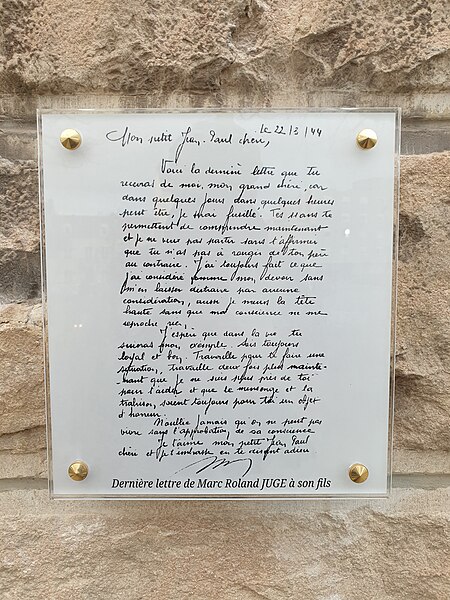 le 22/3/44
Mon petit Jean-Paul chéri,
Voici la dernière lettre que tu
recevras de moi, mon grand chéri, car
dans quelques jours dans quelques heures
peut être, je serai fusillé. Tes 11 ans te
permettent de comprendre maintenant
et je ne veux pas partir sans t'affirmer
que tu n'as pas à rougir de ton père
au contraire. J'ai toujours fait ce que
j'ai considéré comme mon devoir sans
m'en laisser distraire par aucune
considération, aussi je meurs la tête
haute sans que ma conscience ne me
reproche rien.
J'espère que dans la vie tu
suivras mon exemple. Sois toujours
loyal et bon. Travaille pour te faire une
situation, travaille deux fois plus mainte-
nant que je ne suis plus près de toi
pour t'aider et que le mensonge et la
trahison soient toujours pour toi un objet
d'horreur.
N'oublie jamais qu'on ne peut pas
vivre sans l'approbation de sa conscience
Je t'aime mon petit Jean Paul
chéri et je t'embrasse en te disant adieu
Dernière lettre de Marc Roland JUGE à son fils